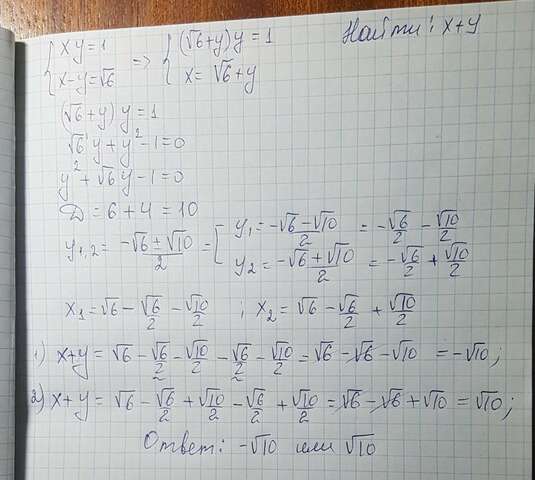 { xy = 1 => { (√6+y)y = 1 Найти: x+y
{ x-y = √6 { x = √6+y
(√6+y)y = 1
√6 y + y² - 1 = 0
y² + √6 y - 1 = 0
D = 6+4 = 10
y₁,₂ = (-√6 ± √10)/2 = [ y₁ = (-√6-√10)/2 = -√6/2 - √10/2
y₂ = (-√6+√10)/2 = -√6/2 + √10/2
x₁ = √6 - √6/2 - √10/2 ; x₂ = √6 - √6/2 + √10/2
1) x+y = √6 - √6/2 - √10/2 - √6/2 - √10/2 = √6 - √6 - √10 = -√10;
2) x+y = √6 - √6/2 + √10/2 - √6/2 + √10/2 = √6 - √6 + √10 = √10;
Ответ: -√10 или √10